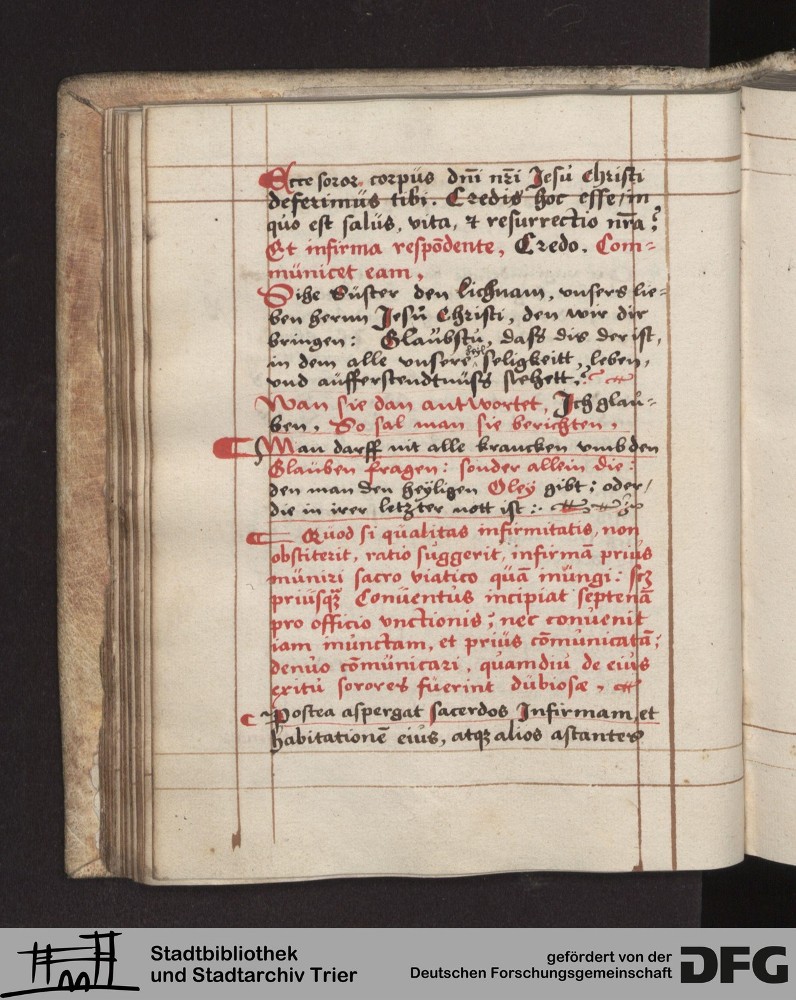 Ecce soror corpus dñi nr̃i Jesu Christi
deferimus tibi. Credis hoc esse, in
quo est salus, vita, et resurrectio nr̃a?
Et infirma respõdente, Credo. Com-
municet eam,
Sihe Suster den lichnam, unsers lie-
ben hernn Jesu Christi, den wir dir
bringen: Glaubstu, dass dis der ist,
in dem alle unsere seligkeitt, leben,
und aufferstendtnuss stehett?
Wan sie dan antwortet, Jch glau-
ben, So sal man sie berichten,
Man darff nit alle krancken umb den
Glauben fragen: sonder allein die:
den man den heyligen Oley gibt; oder/
die in irer letzter nott ist:
Quod si qualitas infirmitatis, non
obstiterit, ratio suggerit, infirmã prius
muniri sacro viatico quã inungi: scz
priusqz Conventus incipiat septenã
pro officio unctionis; nec convenit
iam inunctam, et prius cõmunicatã;
denuo cõmunicari, quamdiu de eius
exitu sorores fuerint dubiosæ,
Postea aspergat sacerdos Infirmam, et
habitationẽ eius, atqz alios astantes
Stadtbibliothek
und Stadtarchiv Trier
gefördert von der
Deutschen Forschungsgemeinschaft
DFG